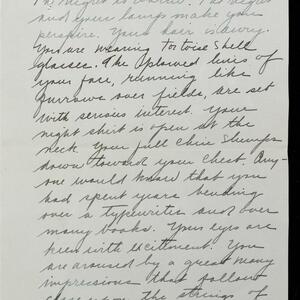 The night is warm. The night
and your lamps make you
perspire. Your hair is awry.
You are wearing tortoise shell
glasses. The plowed lines of
your face, running like
furrows over fields, are set
with serious interest. Your
night shirt is open at the
neck. Your full chin slumps
down toward your chest. Any-
one would know that you
had spent years bending
over a typewriter and over
many books. Your eyes are
keen with excitement. You
are around by a great many
impressions that follow
the string of